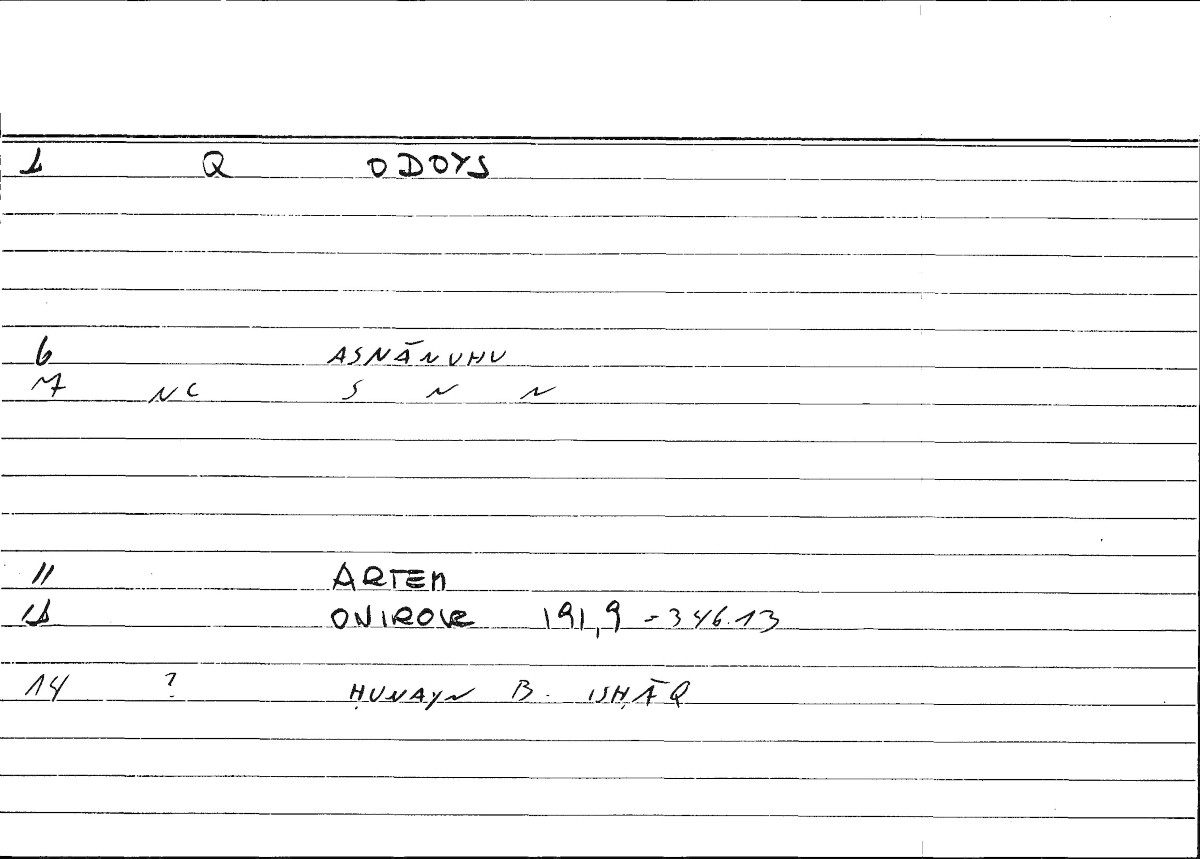 1 Q ODOYS
6 ASNĀNUHU
7 NC S N N
11 ARTEM
12 ONIROK 191,9 - 346.13
14 ? ḤUNAYN B. ISḤĀQ